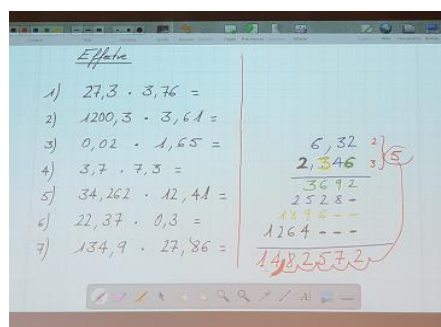 Effettua
1) 27,3 · 3,76 =
2) 1200,3 · 3,61 =
3) 0,02 · 1,65 =
4) 3,7 · 7,3 =
5) 34,262 · 12,41 =
6) 22,37 · 0,3 =
7) 134,9 · 27,86 =
6,32 2
2,346 3 5
3692
2528-
1896--
1264---
14,82572